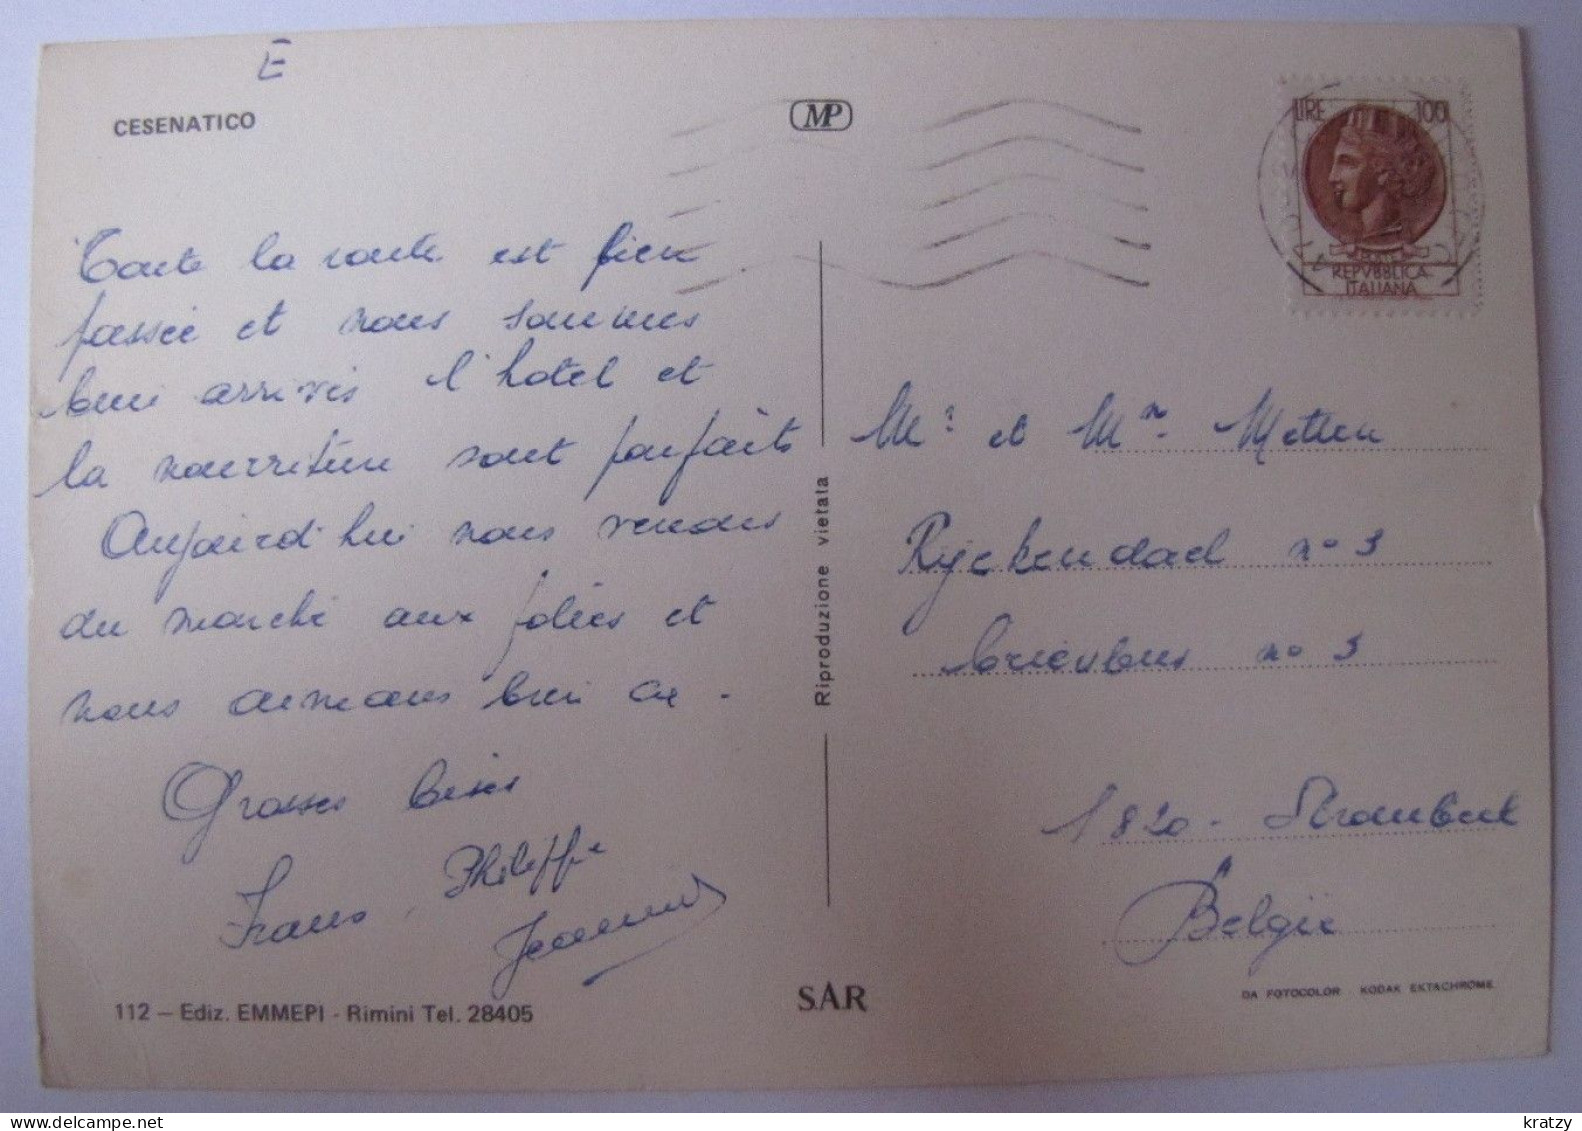 E
CESENATICO
MP
LIRE 100
REPVBBLICA
ITALIANA
Toute la route est bien
passée et nous sommes
bien arrivés l'hotel et
la nourriture sont parfaits
Aujourd'hui nous venons
du marché aux folies et
nous aimons bien ça.
Grosses bises
Frans, Philippe
Jeannine
112 – Ediz. EMMEPI - Rimini Tel. 28405
Riproduzione vietata
SAR
Mr et Mme
Ryckendael no 3
brievenbus no 3
1820 - Strombeek
België
DA FOTOCOLOR KODAK EKTACHROME
kratzy